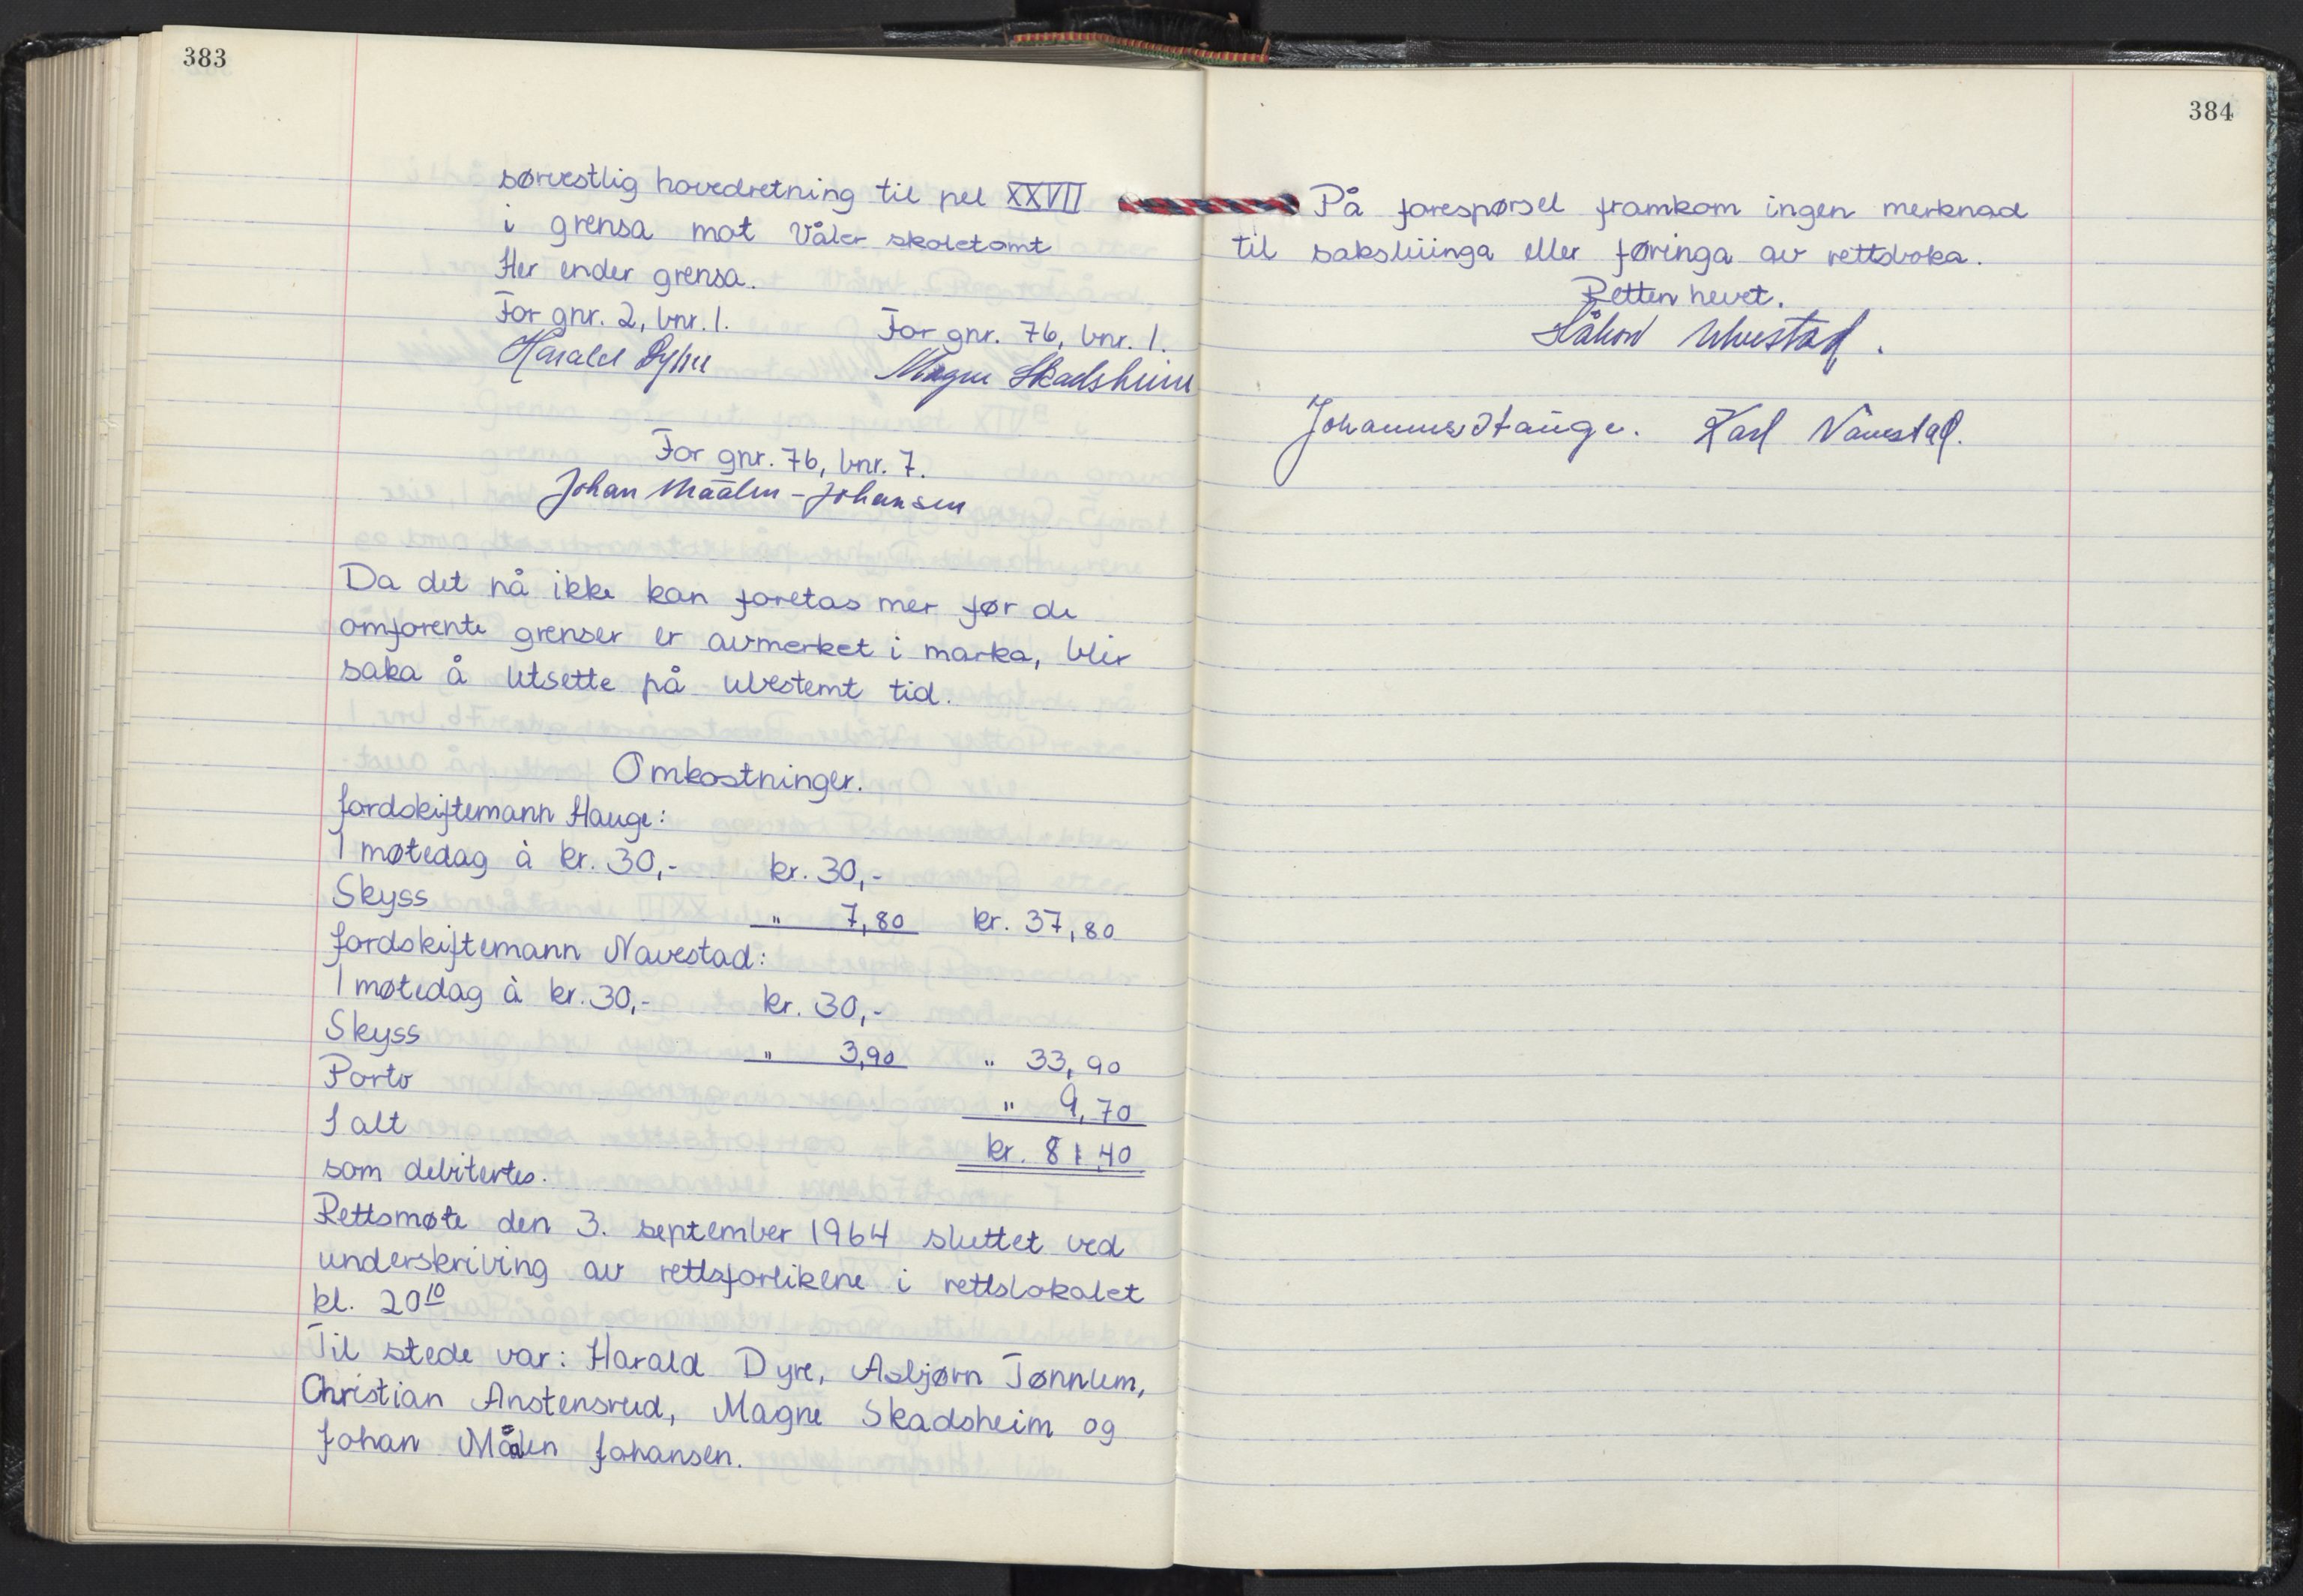 383
sørvestlig hovedretning til pel XXVII
i grensa mot Våler skoletomt
Her ender grensa.
For gnr. 2, bnr. 1. For gnr. 76, bnr. 1.
Harald Dyre Magne Skadsheim
For gnr. 76, bnr. 7.
Johan Maalen-Johansen
Da det nå ikke kan foretas mer før de
omforente grenser er avmerket i marka, blir
saka å utsette på ubestemt tid.
Omkostninger.
Jordskiftemann Hauge:
1 møtedag à kr. 30,- kr. 30,-
Skyss " 7,80 kr. 37,80
Jordskiftemann Navestad:
1 møtedag à kr. 30,- kr. 30,-
Skyss " 3,90 " 33,90
Porto " 9,70
I alt kr. 81,40
som debitertes.
Rettsmøte den 3. september 1964 sluttet ved
underskriving av rettsforlikene i rettslokalet
kl. 20¹⁰
Til stede var: Harald Dyre, Asbjørn Tønnlem,
Christian Anstensrud, Magne Skadsheim og
Johan Målen Johansen.
384
På forespørsel framkom ingen merknad
til saksliinga eller føringa av rettsboka.
Retten hevet.
Håkon
Johannes Hauge. Karl Navestad.